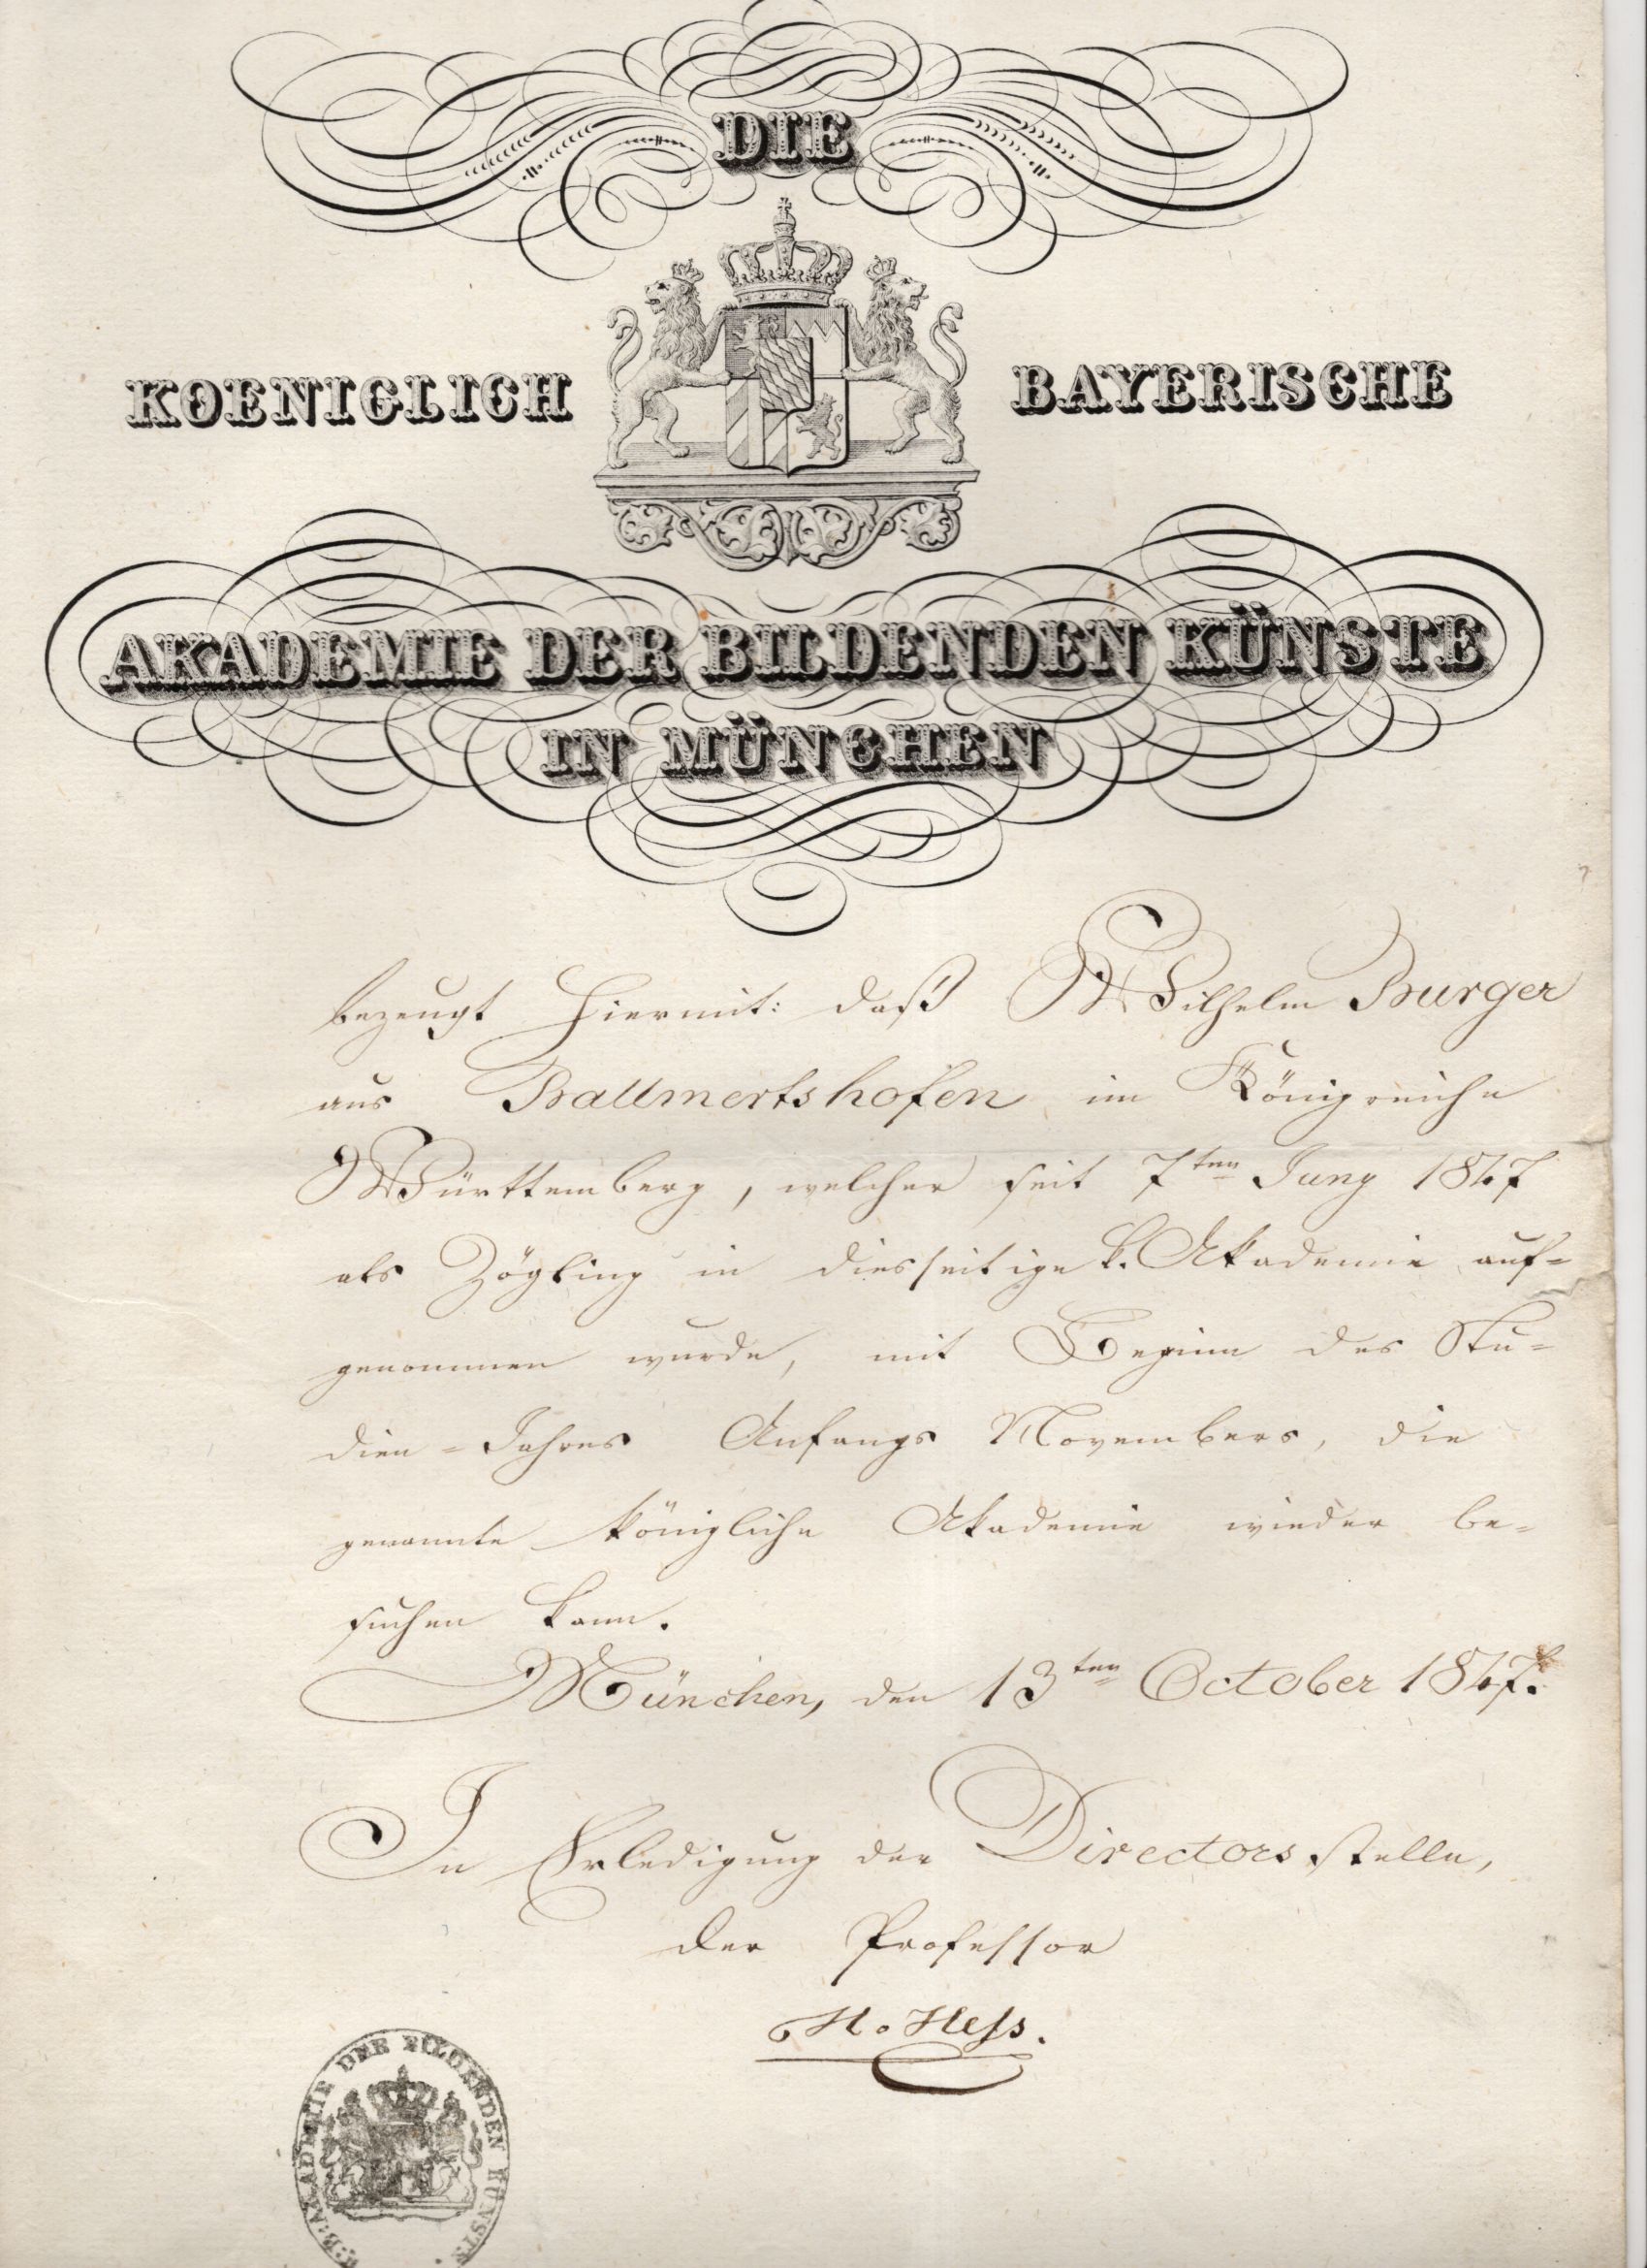 DIE
KOENIGLICH BAYERISCHE
AKADEMIE DER BILDENDEN KÜNSTE
IN MÜNCHEN
bezeugt hiermit: daß Wilhelm Burger
aus Ballmertshofen im Königreiche
Württemberg, welcher seit 7ten Juny 1847
als Zögling in diesseitige k. Akademie auf=
genommen wurde, mit Beginn des Stu=
dien=Jahres Anfangs Novembers, die
genannte königliche Akademie wieder be=
suchen kann.
München, den 13ten October 1847.
In Erledigung der Directorsstelle,
der Professor
H. Hess.
K:B:AKADEMIE DER BILDENDEN KÜNSTE